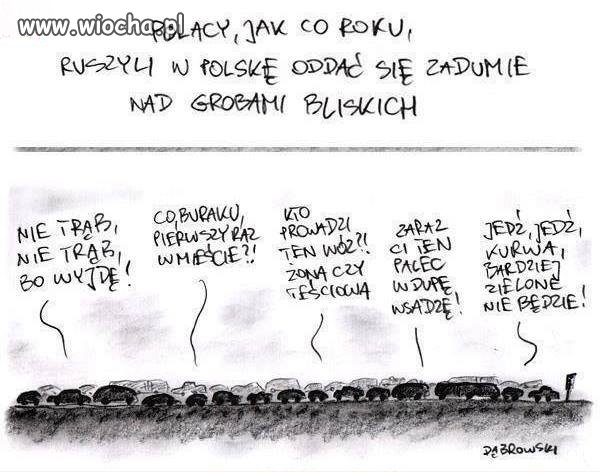 www.wiocha.pl
POLACY, JAK CO ROKU,
RUSZYLI W POLSKĘ ODDAĆ SIĘ ZADUMIE
NAD GROBAMI BLISKICH
NIE TRĄB,
NIE TRĄB,
BO WYJDĘ!
CO, BURAKU,
PIERWSZY RAZ
W MIEŚCIE?!
KTO
PROWADZI
TEN WÓZ?!
ŻONA CZY
TEŚCIOWA
ZARAZ
CI TEN
PALEC
W DUPĘ
WSADZĘ!
JEDŹ, JEDŹ,
KURWA,
BARDZIEJ
ZIELONE
NIE BĘDZIE!
DĄBROWSKI